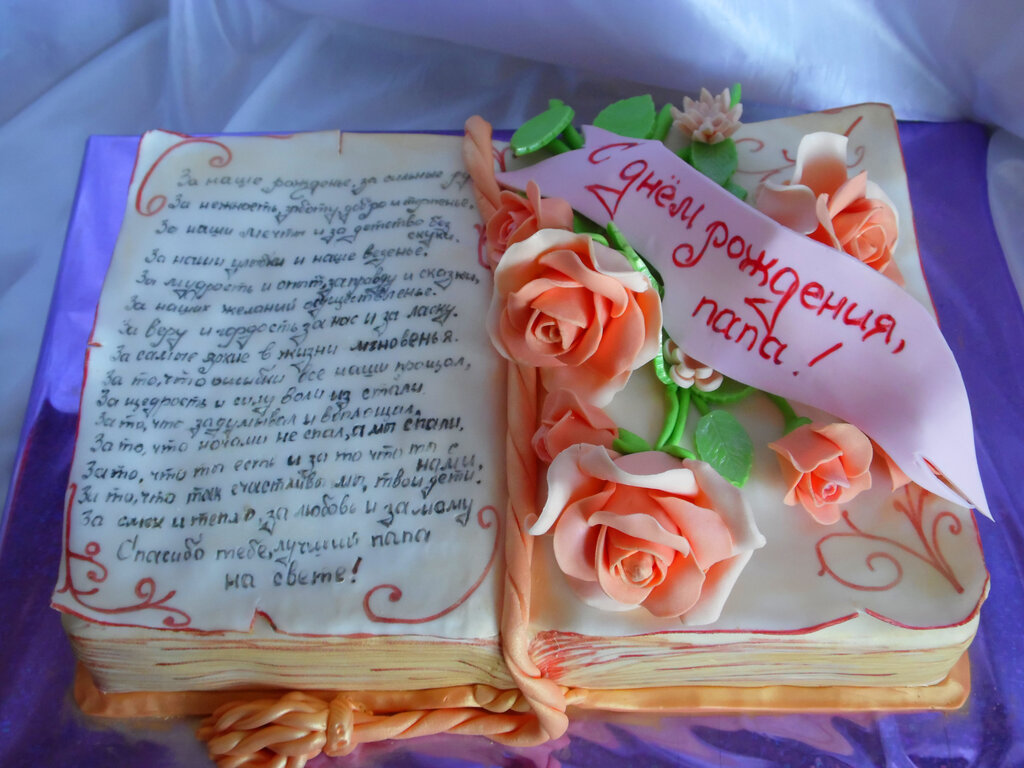 За наше рожденье, за сильные
За нежность, заботу, добро и терпенье.
За наши мечты и за детство без
скуки.
За наши улыбки и наше везенье.
За мудрость и опыт, за правду и сказки,
За наших желаний осуществленье.
За веру и гордость за нас и за ласку.
За самые яркие в жизни мгновенья.
За то, что ошибки все наши прощал,
За щедрость и силу воли из стали.
За то, что задумывал и воплощал,
За то, что ночами не спал, а мы спали,
За то, что ты есть и за то что ты с
нами,
За то, что так счастливы мы, твои дети.
За смех и тепло за любовь и за маму
Спасибо тебе, лучший папа
на свете!
С днём рождения,
папа!